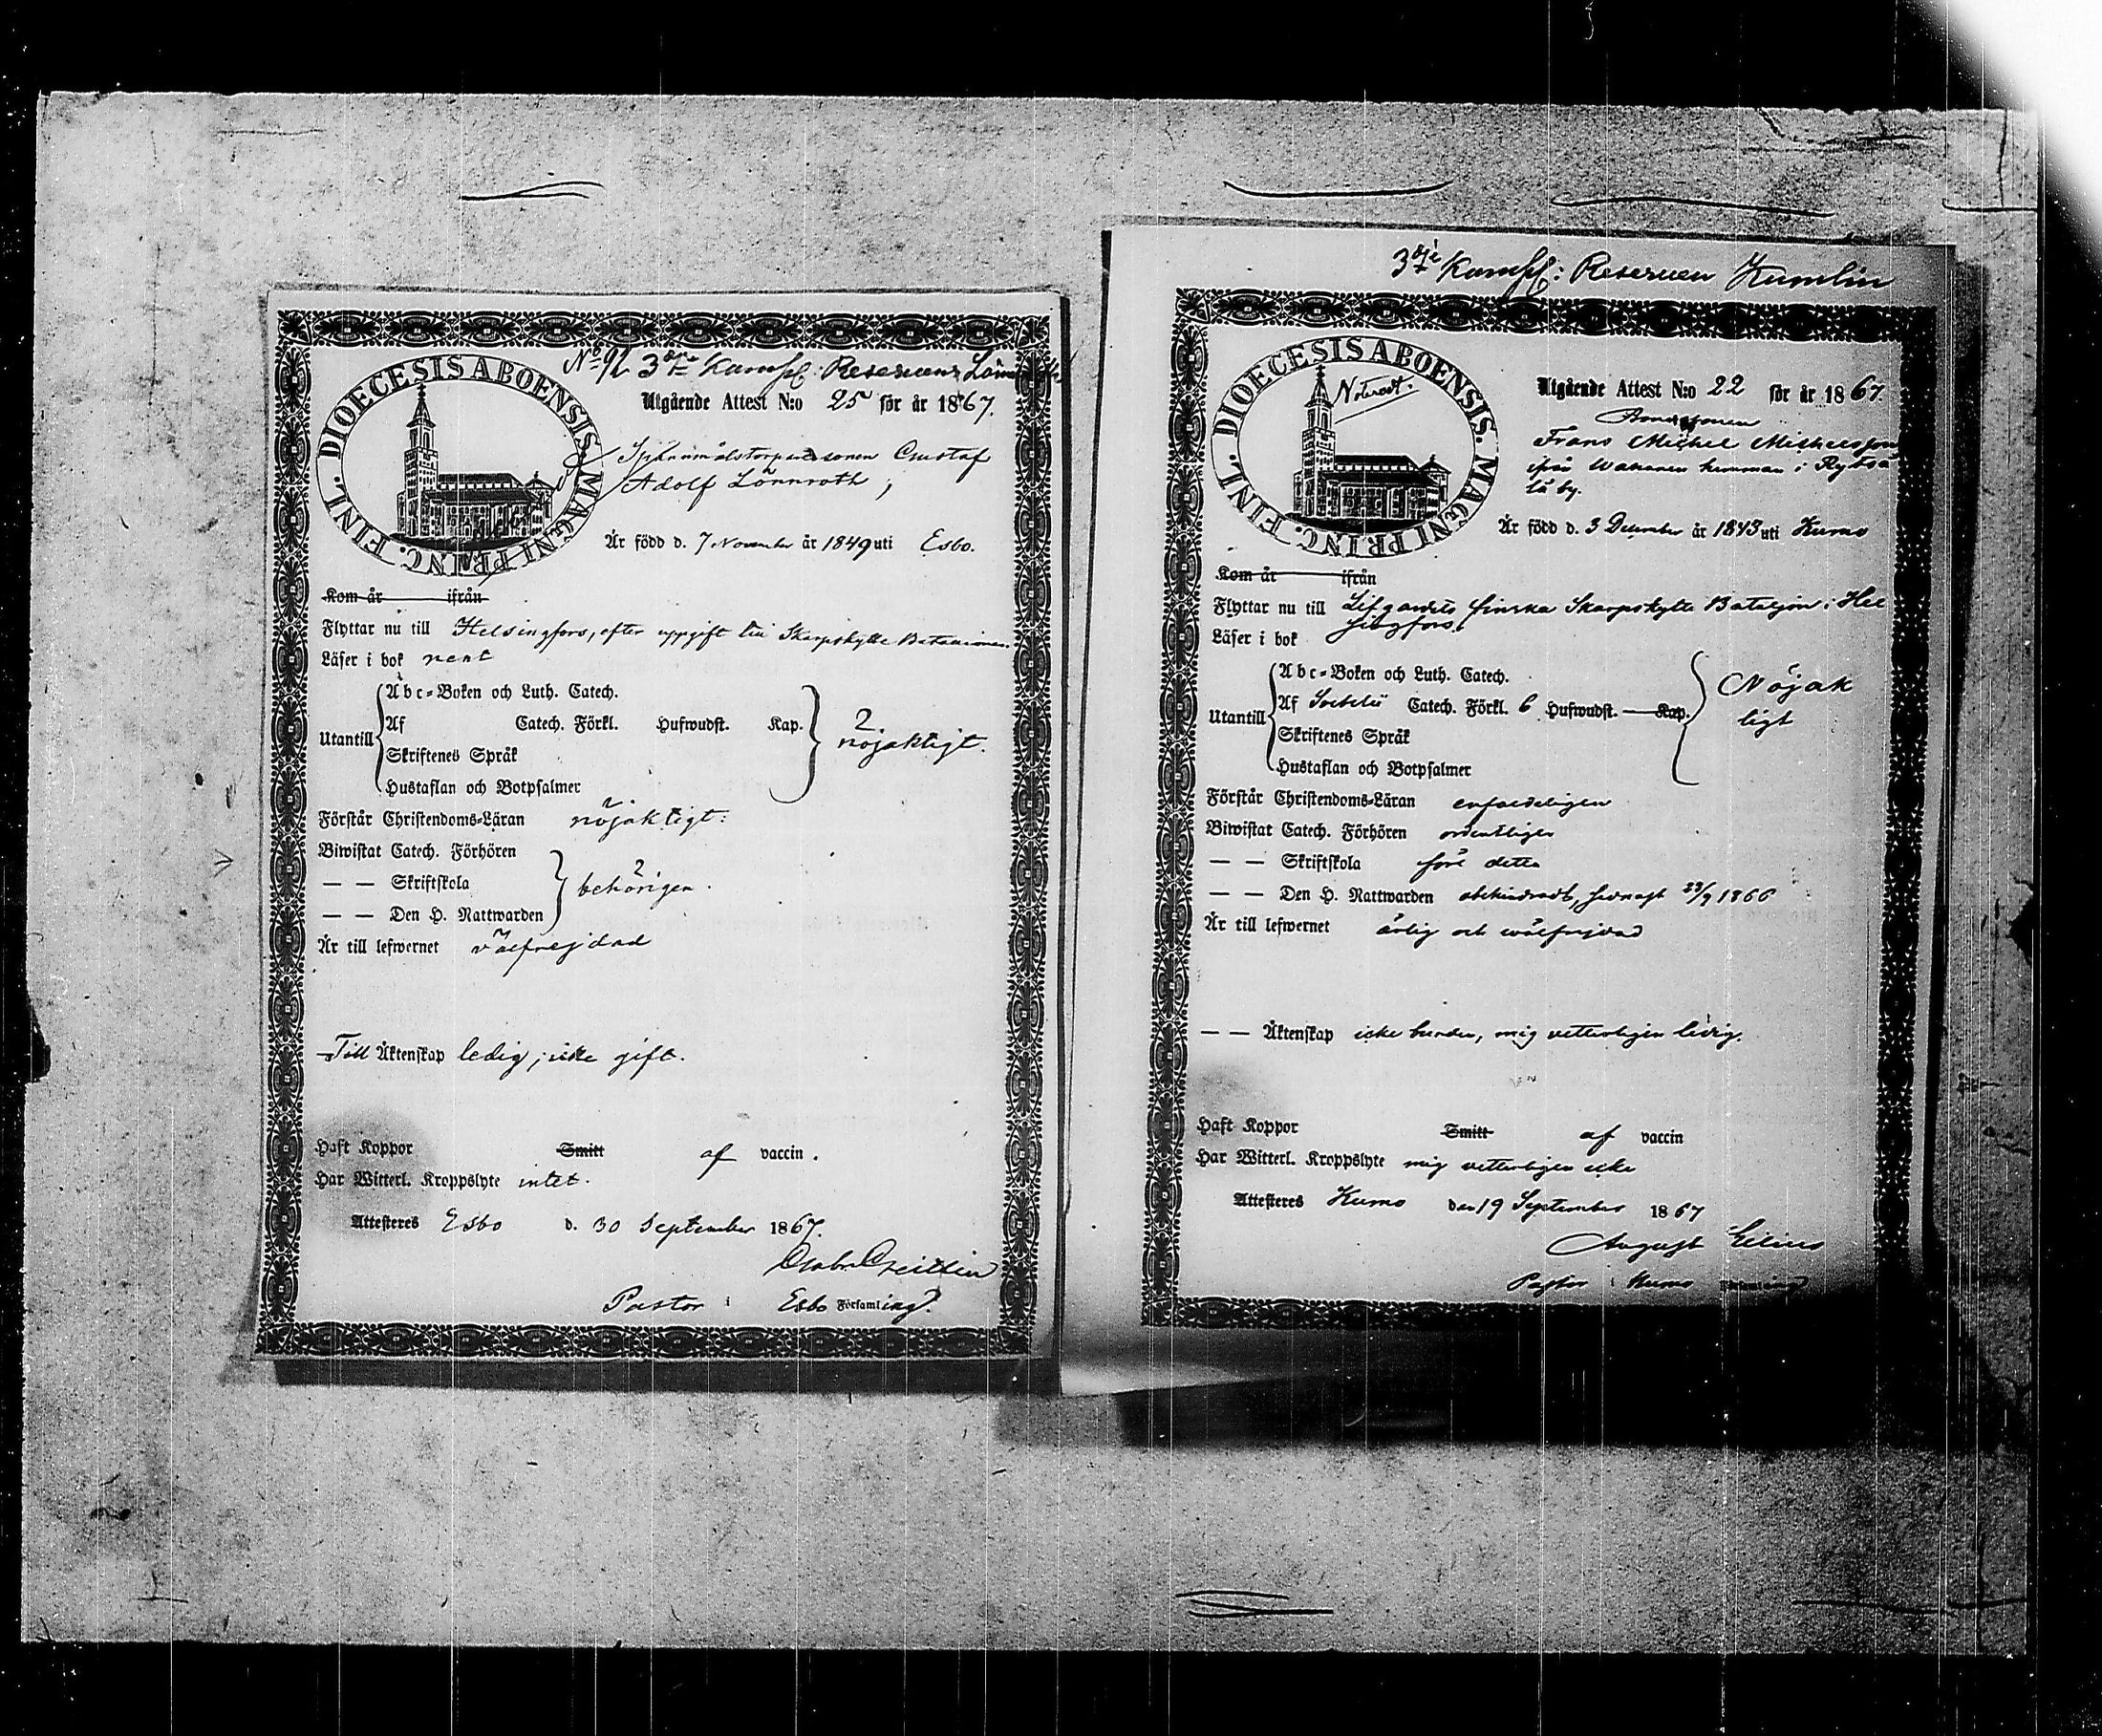 DIOECESIS ABOENSIS. MAGNI PRINC. FINL.
No 92 3dje Kamp: Reserven
Utgående Attest N:o 25 för år 1867.
Gustaf
Adolf Lönnroth,
Är född d. 7 November år 1849 uti Esbo.
Kom år ifrån
Flyttar nu till Helsingfors, efter uppgift till Skarpskytte Bataillonen.
Läser i bok rent
Abc-Boken och Luth. Catech.
Utantill Af Catech. Förkl. Hufwudst. Kap. nöjaktigt.
Skriftenes Språk
Hustaflan och Botpsalmer
Förstår Christendoms-Läran nöjaktigt.
Biwistat Catech. Förhören
— — Skriftskola behörigen.
— — Den H. Nattwarden
Är till lefwernet välfrejdad
Till Äktenskap ledig, icke gift.
Haft Koppor Smitt af vaccin.
Har Witterl. Kroppslyte intet.
Attesteres Esbo d. 30 September 1867.
Pastor i Esbo Församling.
3dje Kamp: Reserven Kumlin
DIOECESIS ABOENSIS. MAGNI PRINC. FINL.
Noteradt.
Utgående Attest N:o 22 för år 1867.
Bondesonen
Frans Michel Michelsson
ifrån hemman i
by.
Är född d. 3 December år 1843 uti Kumo
Kom år ifrån
Flyttar nu till Lifgardets finska Skarpskytte Bataljon i Hel
singfors.
Läser i bok
Abc-Boken och Luth. Catech.
Utantill Af Catech. Förkl. 6 Hufwudst. Kap. Nöjak
ligt
Skriftenes Språk
Hustaflan och Botpsalmer
Förstår Christendoms-Läran enfaldeligen
Biwistat Catech. Förhören ordentligen
— — Skriftskola före detta
— — Den H. Nattwarden obehindradt, senast 23/9 1866
Är till lefwernet ärlig och wälfrejdad
— — Äktenskap icke bunden, mig vetterligen ledig.
Haft Koppor Smitt af vaccin
Har Witterl. Kroppslyte mig vetterligen icke
Attesteres Kumo den 19 September 1867
August
Pastor i Kumo Församling